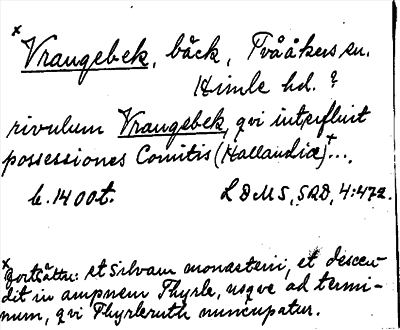 x
Vrangebek, bäck, Tvååkers sn.
Himle hd. ?
rivulum Vrangebek, qvi interfluit
possessiones Comitis (Hallandiæ)+...
b. 1400t. LDMS, SRD, 4:472.
x fortsättn: et silvam monasterii, et descen-
dit in ampnem Thyrle, usqve ad termi-
num, qvi Thyrleruth nuncupatur.